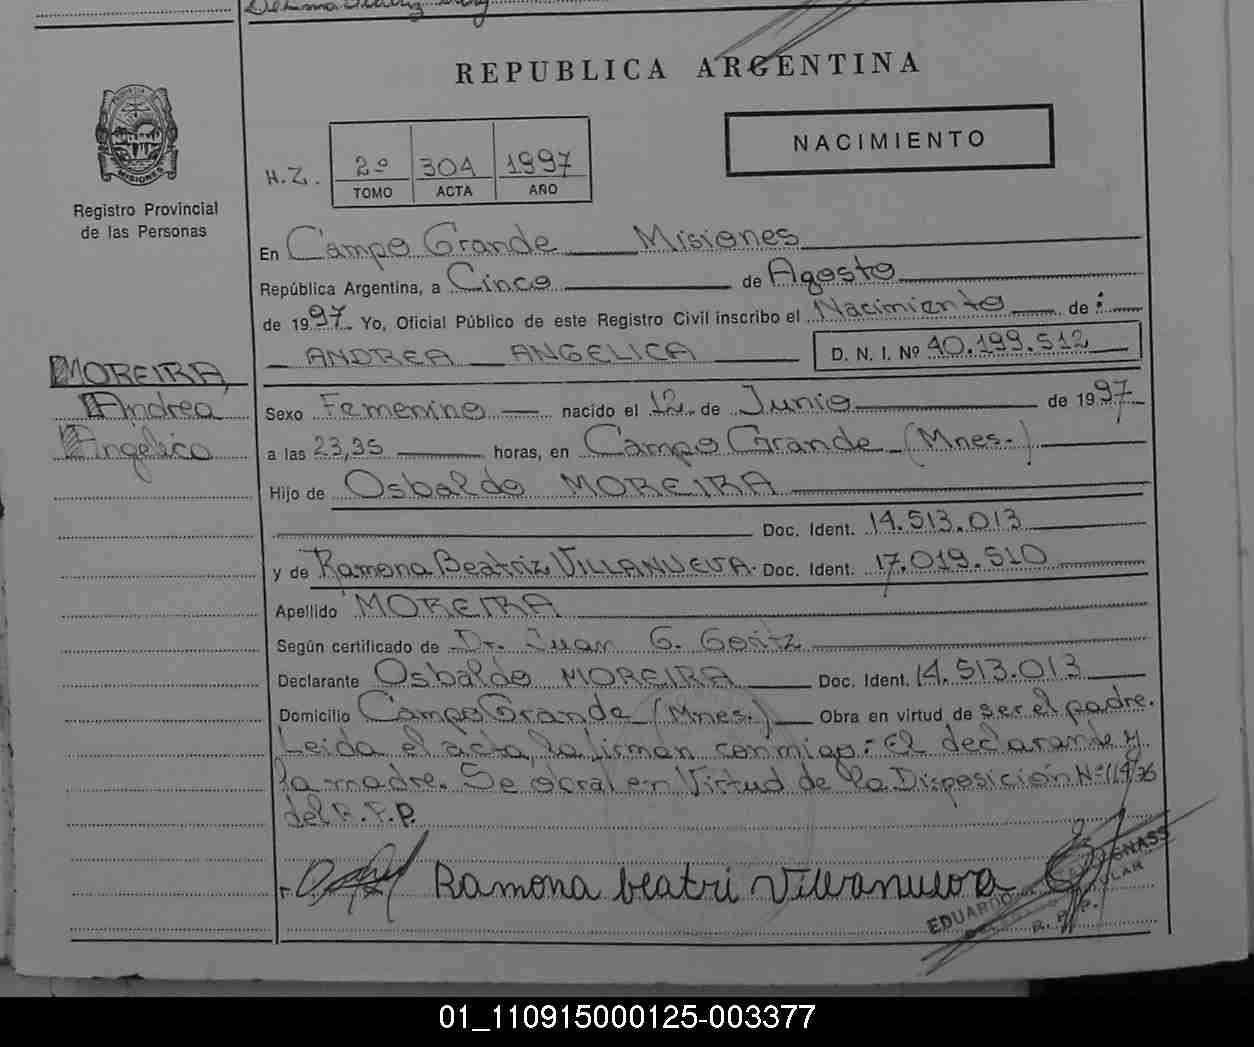 REPUBLICA ARGENTINA
NACIMIENTO
H.Z. 2º 304 1997
TOMO ACTA AÑO
MISIONES
Registro Provincial
de las Personas
En Campo Grande Misiones
República Argentina, a Cinco de Agosto
de 1997. Yo, Oficial Público de este Registro Civil inscribo el Nacimiento de:
ANDREA ANGELICA D. N. I. Nº 40.199.512
MOREIRA,
Andrea
Angelica
Sexo Femenino nacido el 12 de Junio de 1997
a las 23,35 horas, en Campo Grande (Mnes.)
Hijo de Osbaldo MOREIRA
Doc. Ident. 14.513.013
y de Ramona Beatriz VILLANUEVA. Doc. Ident. 17.019.510
Apellido MOREIRA
Según certificado de Dr. Juan G. Goritz
Declarante Osbaldo MOREIRA Doc. Ident. 14.513.013
Domicilio Campo Grande (Mnes.) Obra en virtud de ser el padre.
Leida el acta, la firman conmigo:- El declarante y
la madre. Se obral en Virtud de la Disposición Nº 114/76
del R.P.P.
Ramona beatri Villanueva
EDUARDO
R. P. P.
01_110915000125-003377